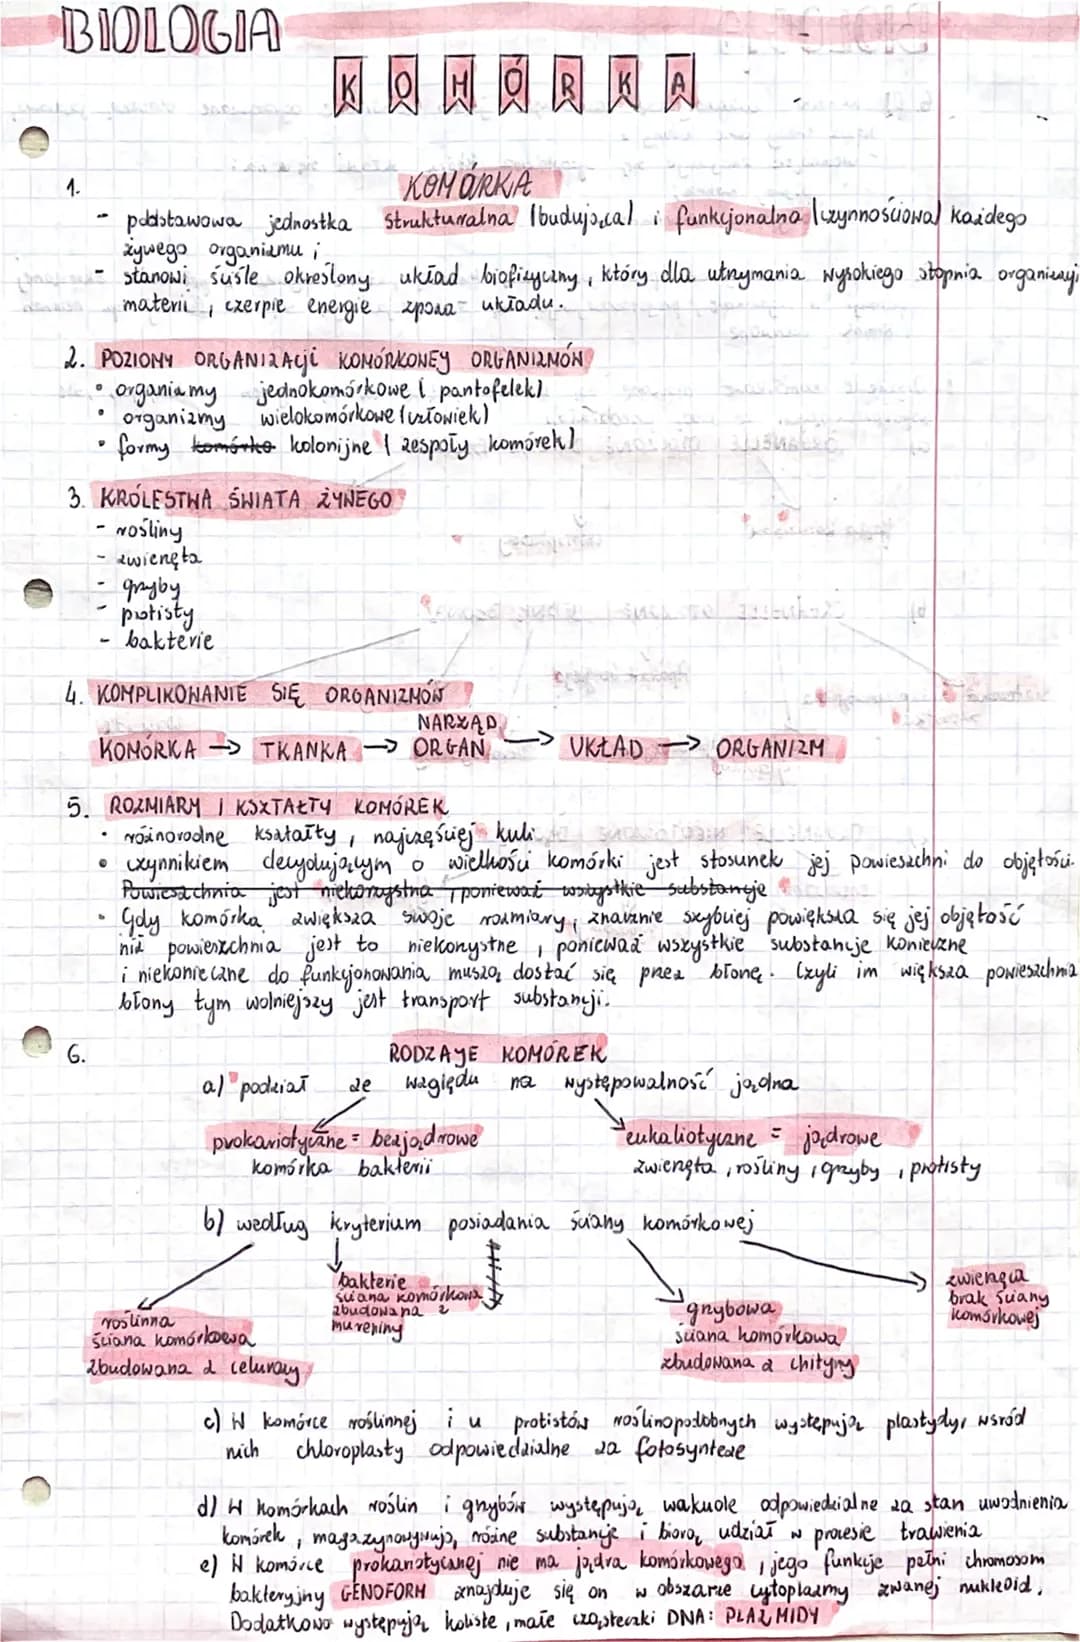 BIOLOGIA
KOMÓRKA
1. KOMÓRKA
- podstawowa jednostka strukturalna (budująca) i funkcjonalna (czynnościowa) każdego
żywego organizmu;
- stanowi ściśle określony układ biofizyczny, który dla utrzymania wysokiego stopnia organizacji
materii, czerpie energie zpoza układu.
2. POZIOMY ORGANIZACJI KOMÓRKOWEJ ORGANIZMÓW
• organizmy jednokomórkowe (pantofelek)
• organizmy wielokomórkowe (człowiek)
• formy komórko kolonijne (zespoły komórek)
3. KRÓLESTWA ŚWIATA ŻYWEGO
- rośliny
- zwierzęta
- grzyby
- protisty
- bakterie
4. KOMPLIKOWANIE SIĘ ORGANIZMÓW
NARZĄD
KOMÓRKA → TKANKA → ORGAN → UKŁAD → ORGANIZM
5. ROZMIARY I KSZTAŁTY KOMÓREK
• różnorodne kształty, najczęściej kuli
• czynnikiem decydującym o wielkości komórki jest stosunek jej powieszchni do objętości.
Powieszchnia jest niekorzystna, ponieważ wszystkie substancje
• Gdy komórka zwiększa swoje rozmiary, znacznie szybciej powiększa się jej objętość
niż powierzchnia jest to niekorzystne, ponieważ wszystkie substancje konieczne
i niekonieczne do funkcjonowania muszą dostać się przez błonę. Czyli im większa powieszchnia
błony tym wolniejszy jest transport substancji.
6. RODZAJE KOMÓREK
a) podział ze względu na występowalność jądra
prokariotyczne = bezjądrowe eukaliotyczne = jądrowe
komórka bakterii zwierzęta, rośliny, grzyby, protisty
b) według kryterium posiadania ściany komórkowej
roślinna
ściana komórkowa
zbudowana z celurozy
bakterie
ściana komórkowa
zbudowana z
mureniny
grzybowa
ściana komórkowa
zbudowana z chityny
zwierzęca
brak ściany
komórkowej
c) W komórce roślinnej i u protistów roślinopodobnych występują plastydy, wśród
nich chloroplasty odpowiedzialne za fotosynteze
d) W komórkach roślin i grzybów występują wakuole odpowiedzialne za stan uwodnienia
komórek, magazynowują różne substancje i biorą udział w procesie trawienia
e) W komórce prokariotycznej nie ma jądra komórkowego, jego funkcje pełni chromosom
bakteryjny GENOFORM znajduje się on w obszarze cytoplazmy zwanej nukleoid.
Dodatkowo występują koliste, małe cząsteczki DNA: PLAZMIDY